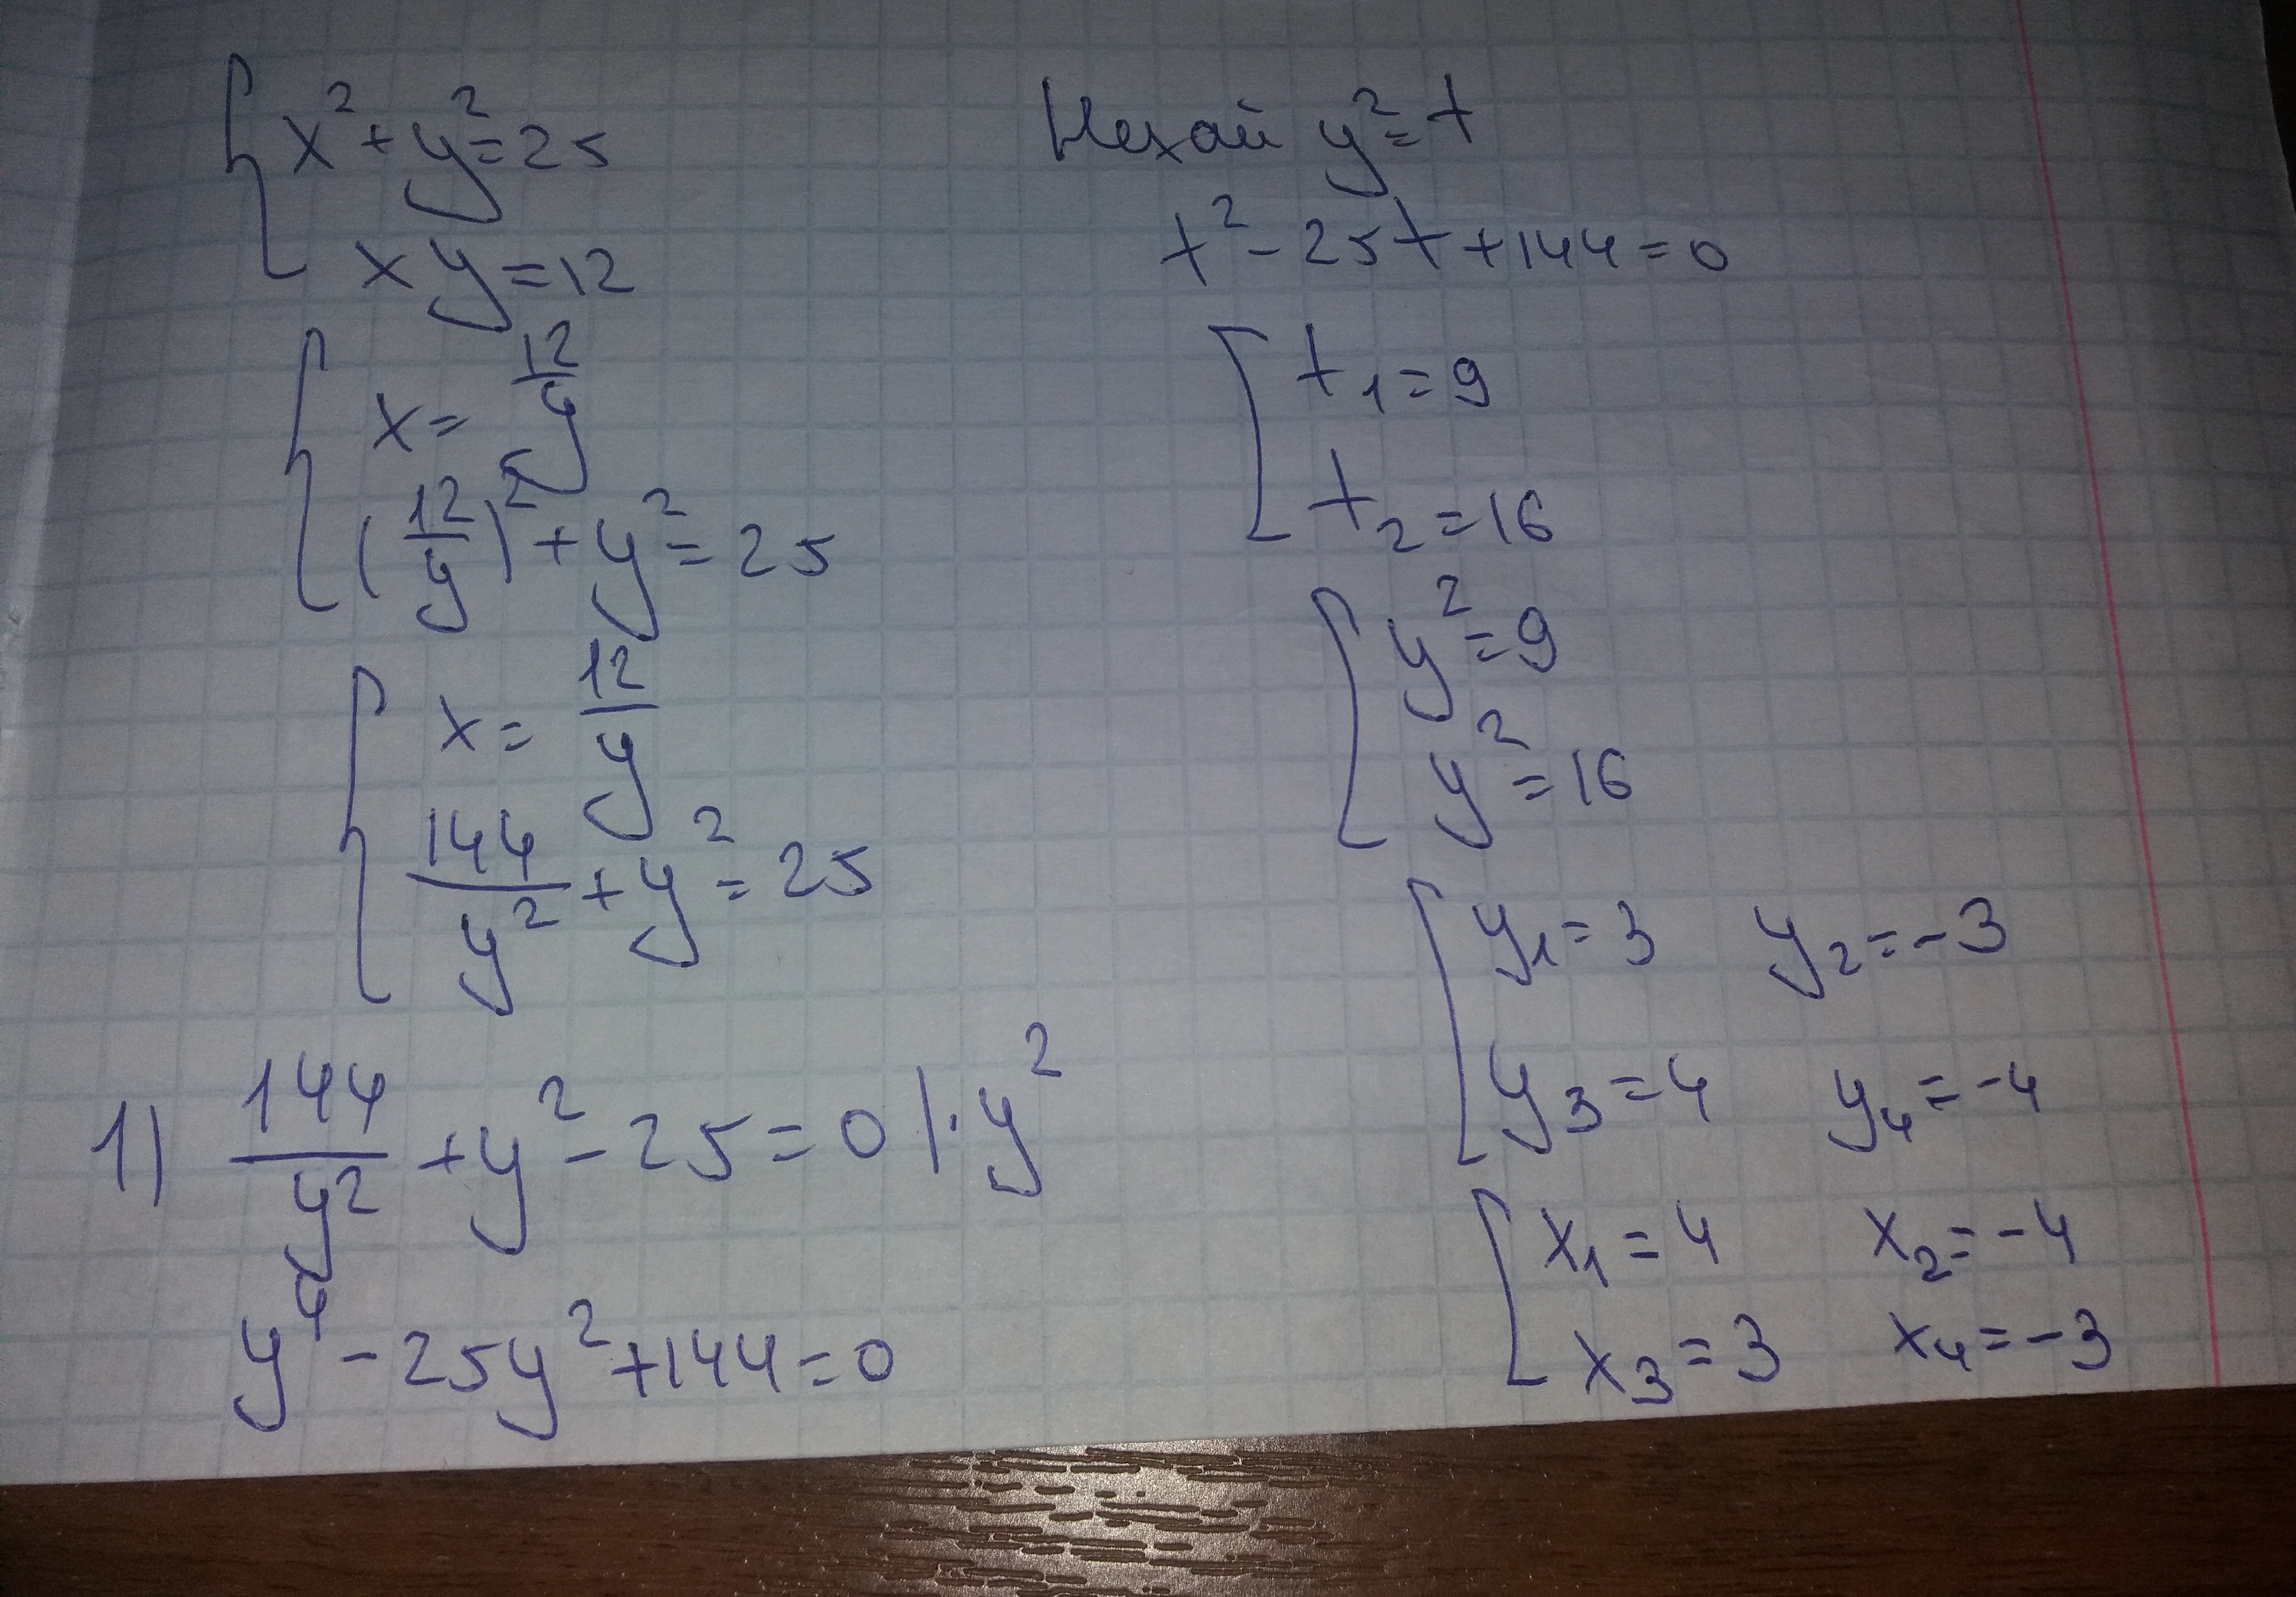 x² + y² = 25
xy = 12
x = 12/y
(12/y)² + y² = 25
x = 12/y
144/y² + y² = 25
1) 144/y² + y² - 25 = 0 | · y²
y⁴ - 25y² + 144 = 0
Нехай y² = t
t² - 25t + 144 = 0
t₁ = 9
t₂ = 16
y² = 9
y² = 16
y₁ = 3 y₂ = -3
y₃ = 4 y₄ = -4
x₁ = 4 x₂ = -4
x₃ = 3 x₄ = -3